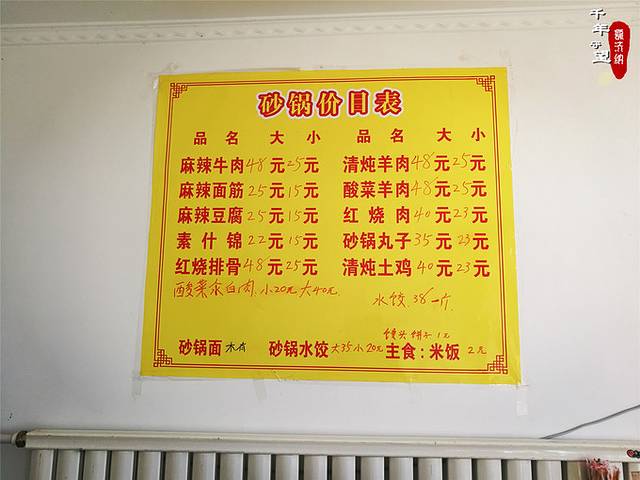 千年守望
砂锅价目表
品名 大 小 品名 大 小
麻辣牛肉48元25元 清炖羊肉48元25元
麻辣面筋25元15元 酸菜羊肉48元25元
麻辣豆腐25元15元 红烧肉40元23元
素什锦22元15元 砂锅丸子35元23元
红烧排骨48元25元 清炖土鸡40元23元
酸菜汆白肉.小20元大40元.
水饺.38一斤
馒头 饼子 1元
砂锅面 砂锅水饺大35小20元 主食:米饭 2元